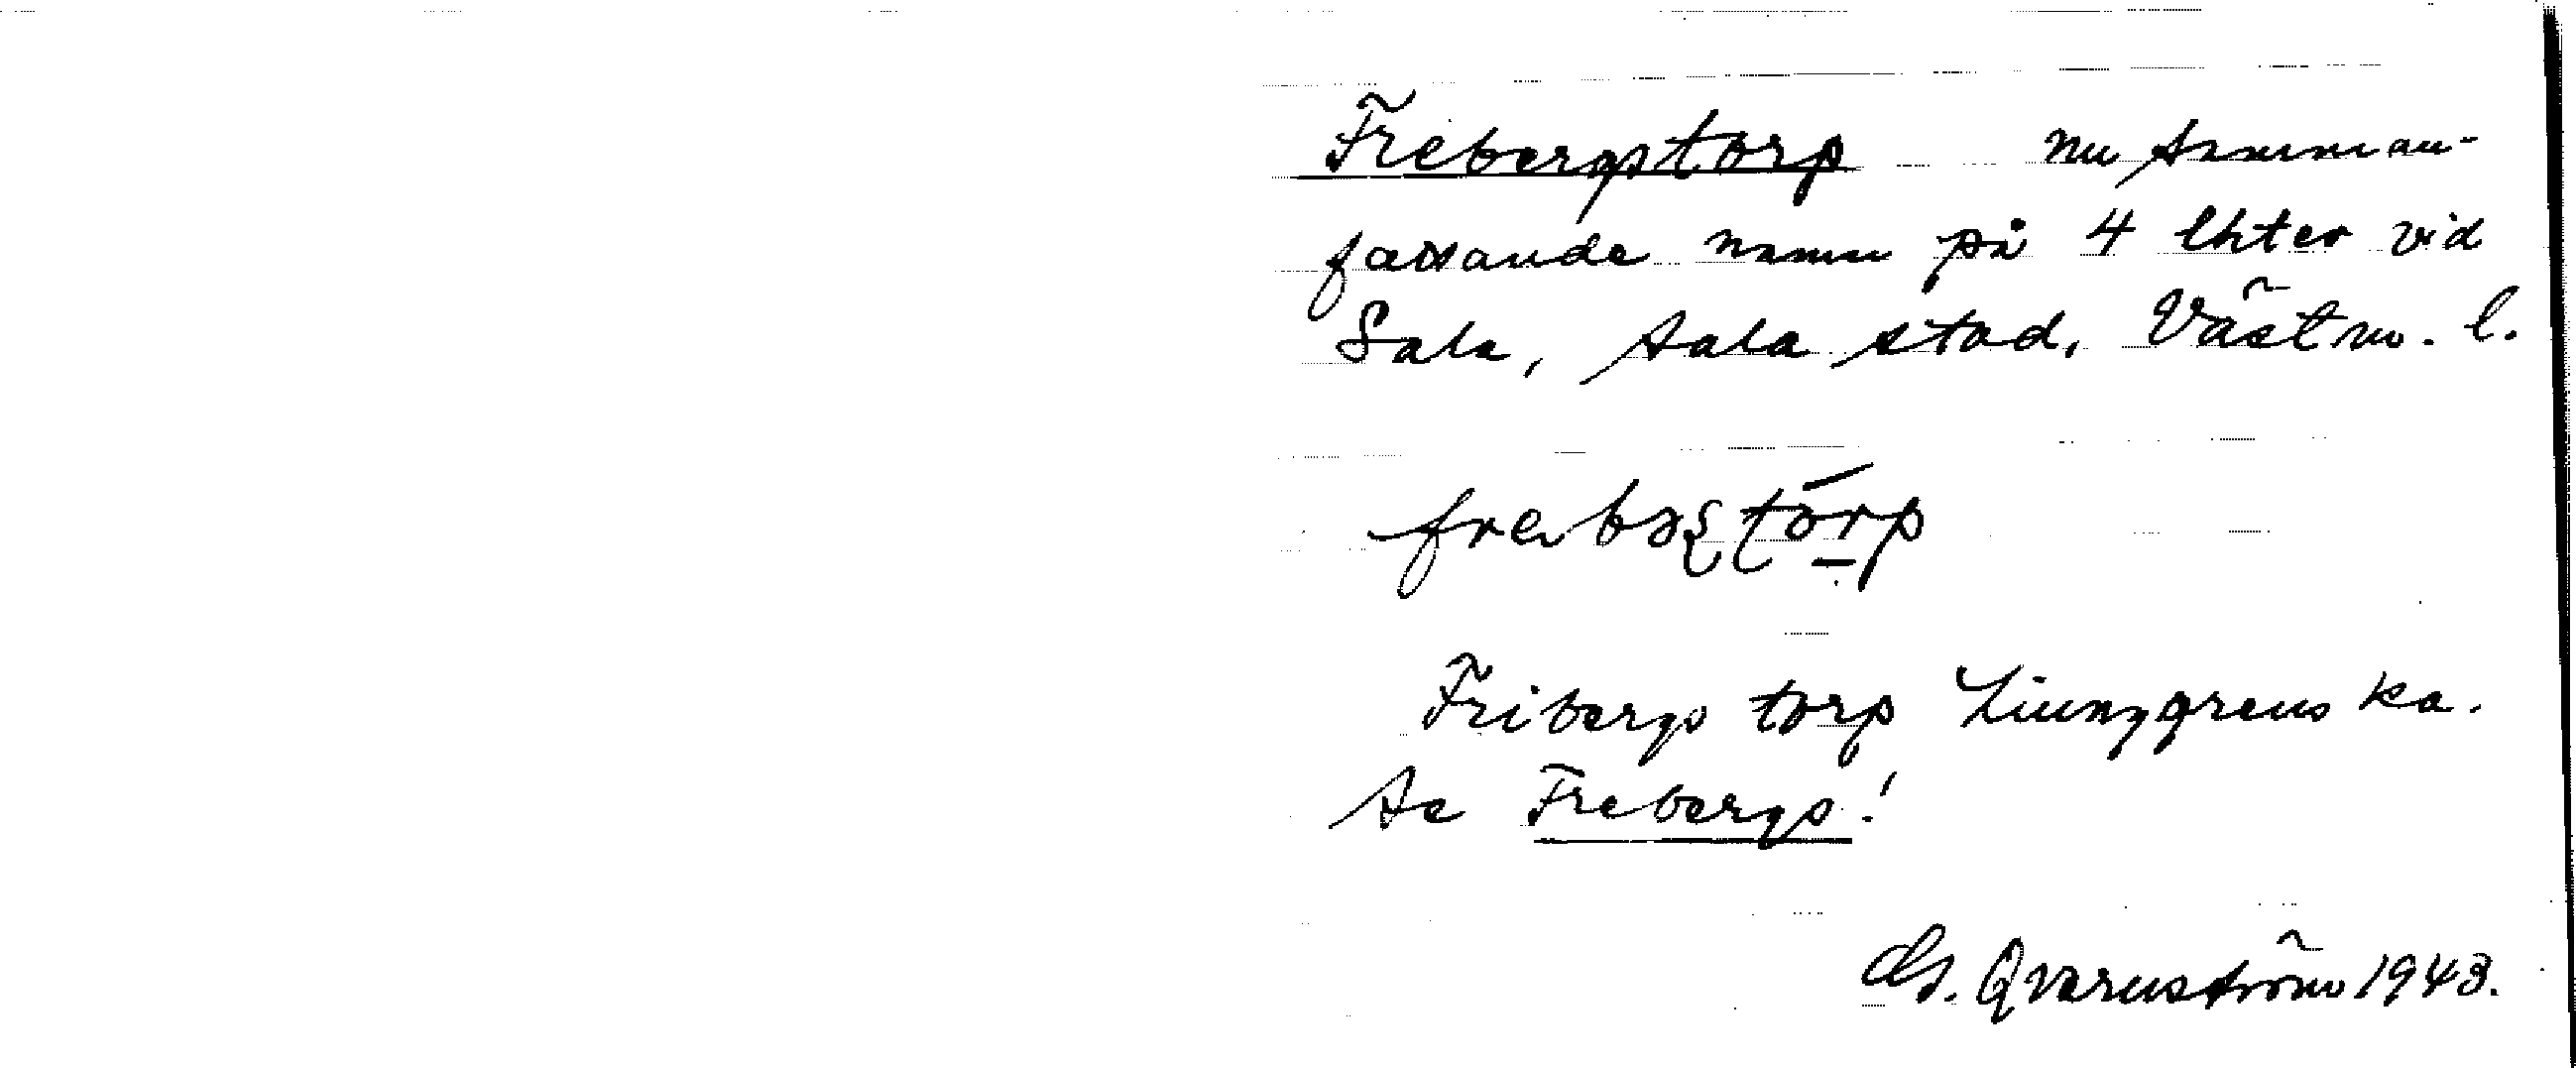 Frebergstorp nu samman-
fattande namn på 4 lhter vid
Sala, Sala stad, Västm. l.
Fribergs torp Ljunggrens ka.
Se Frebergs!
G. Qvarnström 1943.